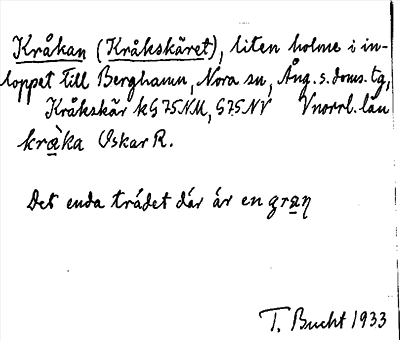 Kråkan (Kråkskäret), liten holme i in-
loppet till Berghamn, Nora sn, Ång. s. doms. tg,
Kråkskär kG75NM, G75NV Vnorrl. län
kràka Oskar R.
Det enda trädet där är en gran
T. Bucht 1933